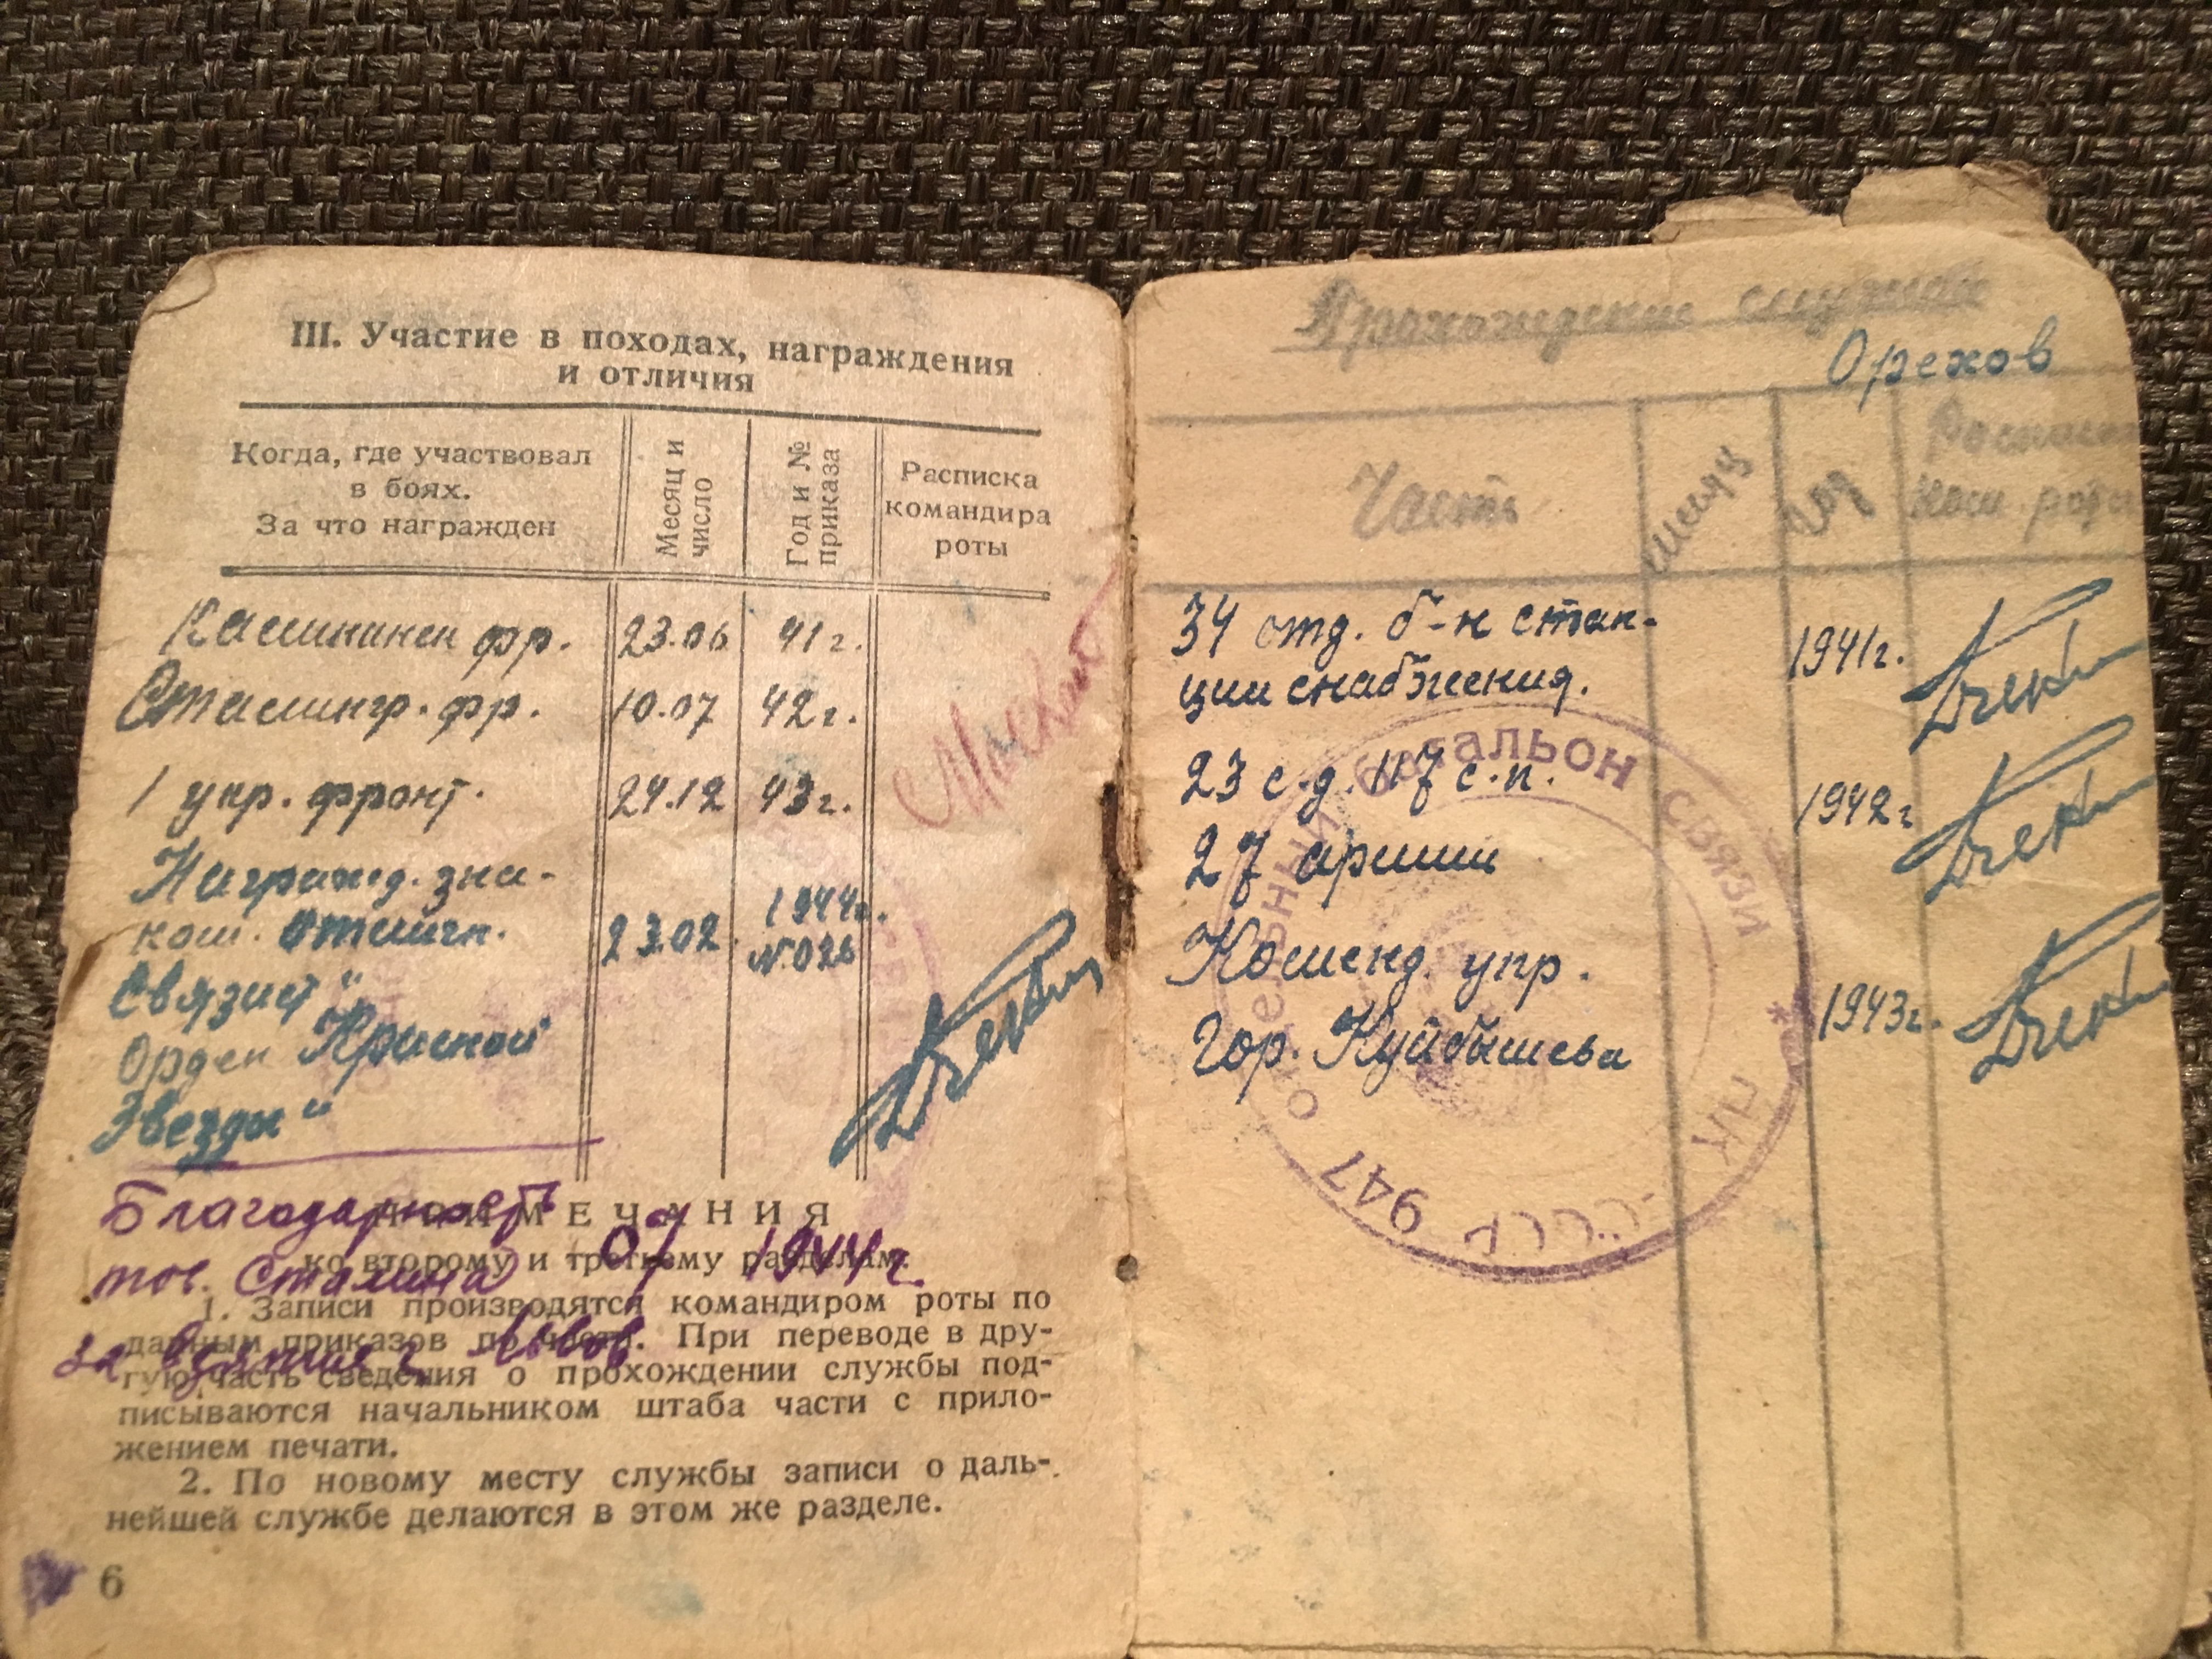 III. Участие в походах, награждения
и отличия
Когда, где участвовал
в боях.
За что награжден
Месяц и
число
Год и №
приказа
Расписка
командира
роты
Калининск фр. 23.06 41 г.
Сталингр. фр. 10.07 42 г.
1 укр. фронт. 24.12 43 г.
Награжд. зна-
ком. отличн. 23.02 1944г.
№ 026
Связист"
Орден Красной
Звезды"
Благодарность
тов. Сталина 07 1944 г.
за взятие г. Львов
ПРИМЕЧАНИЯ
ко второму и третьему разделам.
1. Записи производятся командиром роты по
данным приказов по части. При переводе в дру-
гую часть сведения о прохождении службы под-
писываются начальником штаба части с прило-
жением печати.
2. По новому месту службы записи о даль-
нейшей службе делаются в этом же разделе.
6
Прохождение службы
Орехов
Часть
месяц
год
Расписка
ком роты
34 отд. б-н стан-
ции снабжения. 1941г.
23 с.д. 117 с.п.
27 армии 1942г
Коменд. упр.
Гор. Куйбышева 1943г.
947 отдельный батальон связи * НК СССР